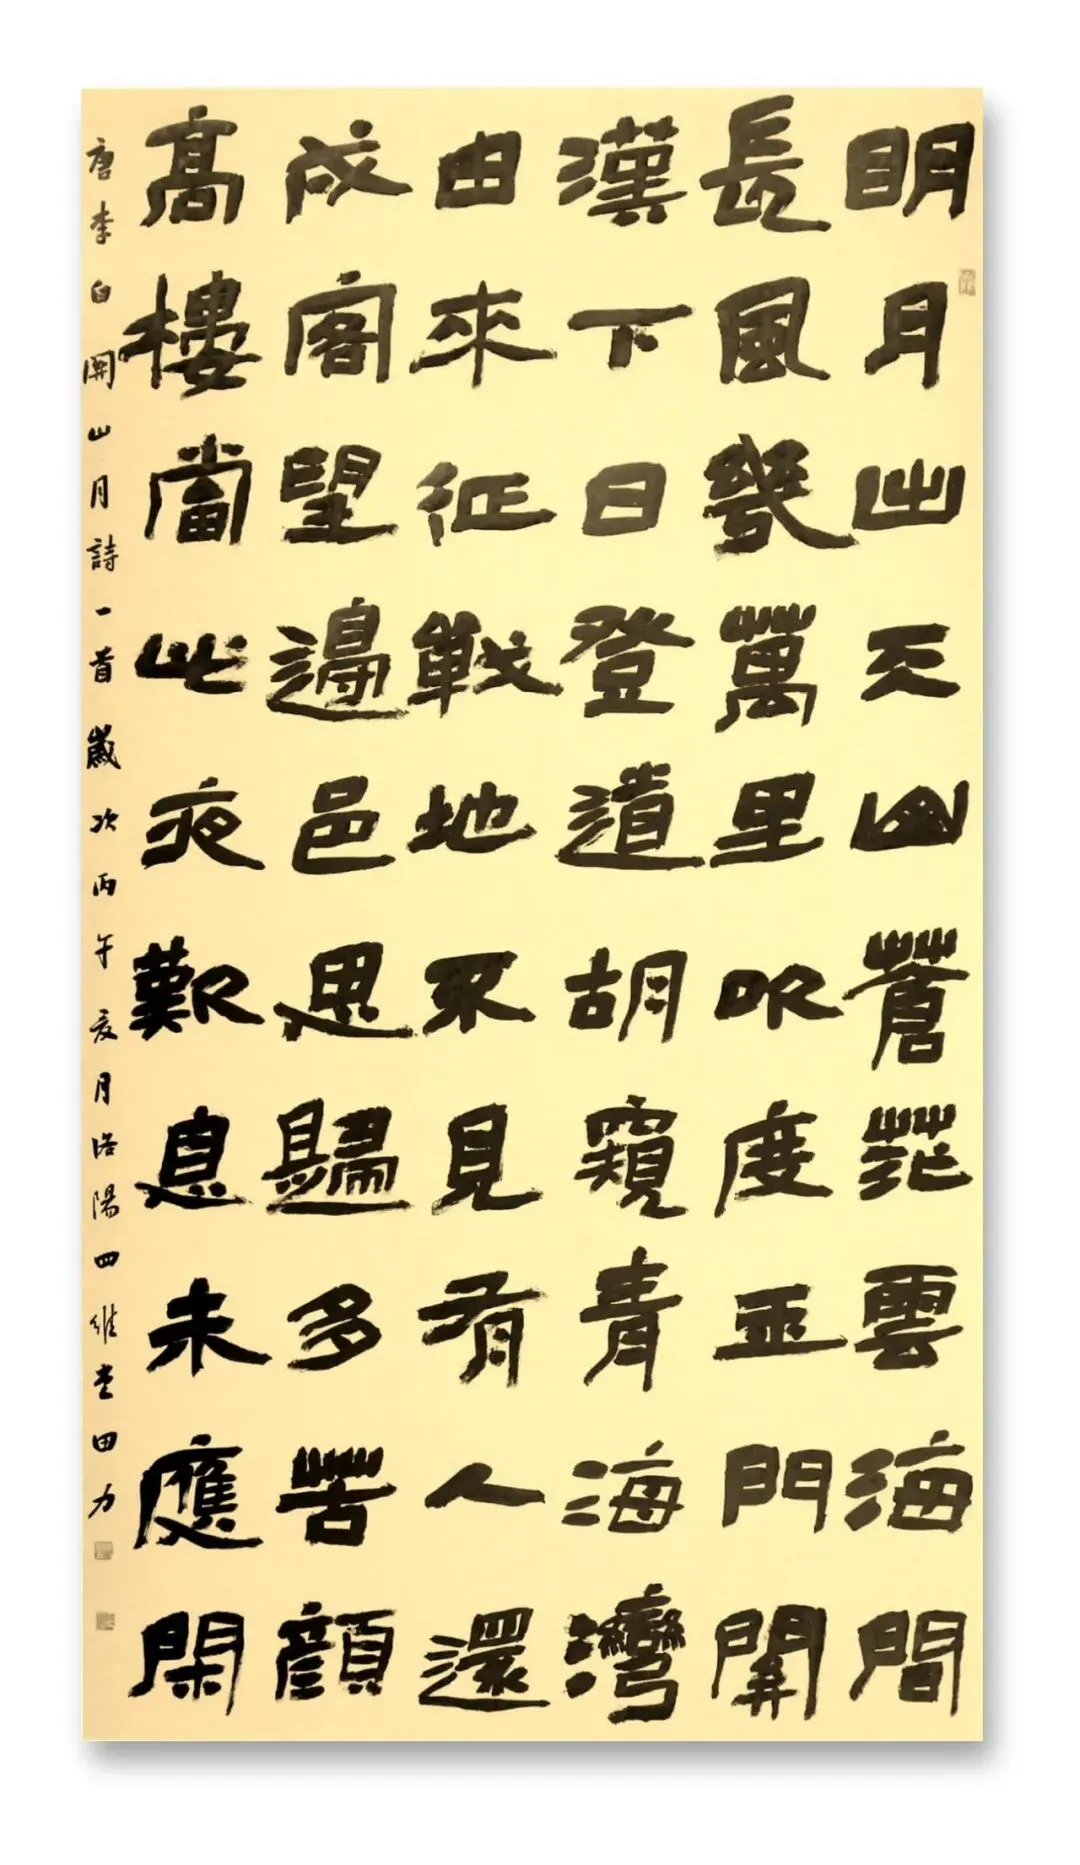 明月出天山蒼茫雲海間
長風幾萬里吹度玉門關
漢下白登道胡窺青海灣
由來征戰地不見有人還
戍客望邊邑思歸多苦顏
高樓當此夜歎息未應閑
唐李白關山月詩一首歲次丙午夏月洛陽四維堂田力